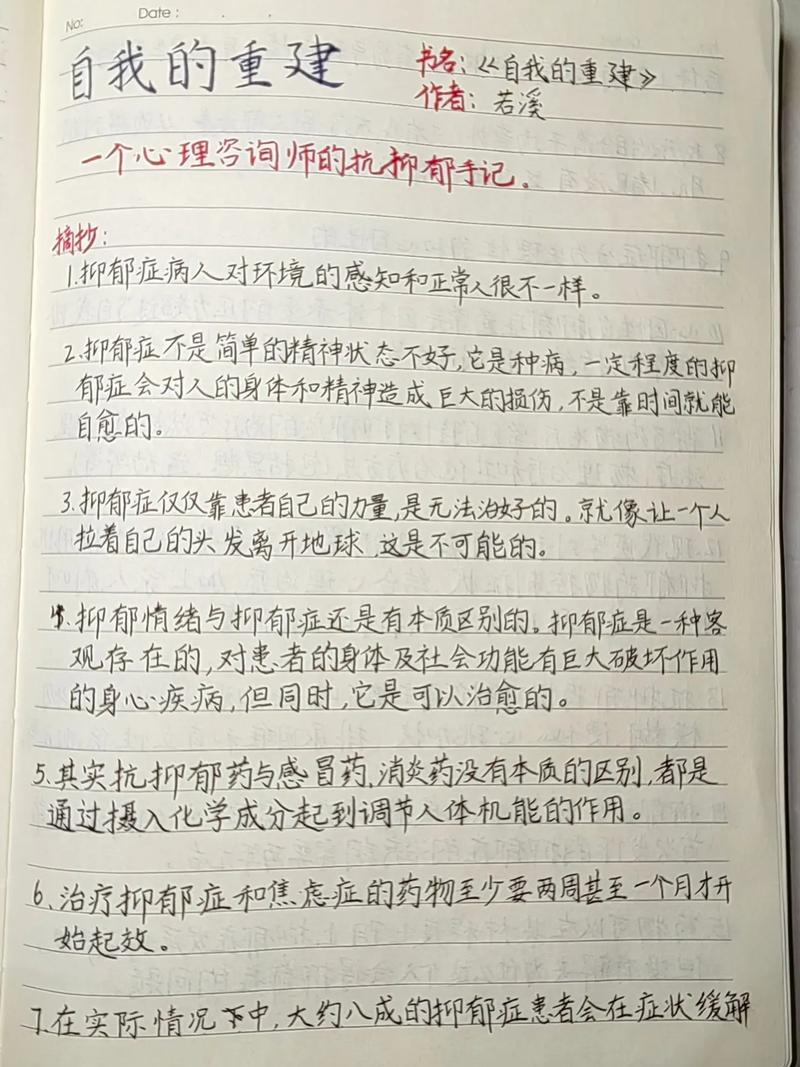 No:
Date: . . ,
自我的重建
书名:《自我的重建》
作者: 若溪
一个心理咨询师的抗抑郁手记。
摘抄:
1.抑郁症病人对环境的感知和正常人很不一样。
2.抑郁症不是简单的精神状态不好,它是种病,一定程度的抑
郁症会对人的身体和精神造成巨大的损伤,不是靠时间就能
自愈的。
3.抑郁症仅仅靠患者自己的力量,是无法治好的。就像让一个人
拉着自己的头发离开地球,这是不可能的。
4.抑郁情绪与抑郁症还是有本质区别的。抑郁症是一种客
观存在的,对患者的身体及社会功能有巨大破坏作用
的身心疾病,但同时,它是可以治愈的。
5.其实抗抑郁药与感冒药、消炎药没有本质的区别,都是
通过摄入化学成分起到调节人体机能的作用。
6、治疗抑郁症和焦虑症的药物至少要两周甚至一个月才开
始起效。
7.在实际情况下中,大约八成的抑郁症患者会在症状缓解